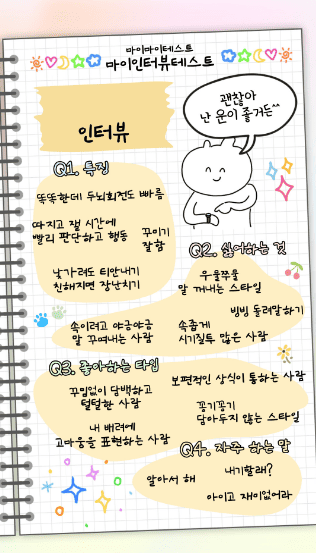 마이마이테스트
마이인터뷰테스트
괜찮아
난 운이 좋거든^^
인터뷰
Q1. 특징
똑똑한데 두뇌회전도 빠름
따지고 잴 시간에
빨리 판단하고 행동
꼬이기
잘함
낯가려도 티안내기
친해지면 장난치기
Q2. 싫어하는 것
우물쭈물
말 꺼내는 스타일
빙빙 돌려말하기
속이려고 야금야금
말 꾸며내는 사람
속좁게
시기질투 많은 사람
Q3. 좋아하는 타입
꾸밈없이 담백하고
털털한 사람
보편적인 상식이 통하는 사람
꽁기꽁기
담아두지 않는 스타일
내 배려에
고마움을 표현하는 사람
Q4. 자주 하는 말
알아서 해
내기할래?
아이고 재미없어라